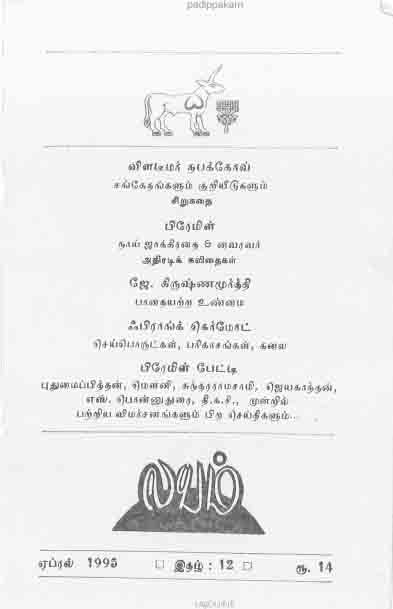 padippakam
விளடீமர் நபக்கோவ்
சங்கேதங்களும் குறியீடுகளும்
சிறுகதை
பிரேமிள்
நாய் ஜாக்கிரதை & வைரவர்
அதிரடிக் கவிதைகள்
ஜே. கிருஷ்ணமூர்த்தி
பாதையற்ற உண்மை
ஃபிராங்க் கெர்மோட்
செய்பொருட்கள், பரிகாசங்கள், கலை
பிரேமிள் பேட்டி
புதுமைப்பித்தன், மௌனி, சுந்தரராமசாமி, ஜெயகாந்தன்,
எஸ். பொன்னுதுரை, தி.க.சி., முன்றில்
பற்றிய விமர்சனங்களும் பிற செய்திகளும்...
லயம்
ஏப்ரல் 1995 □ இதழ் : 12 □ ரூ. 14